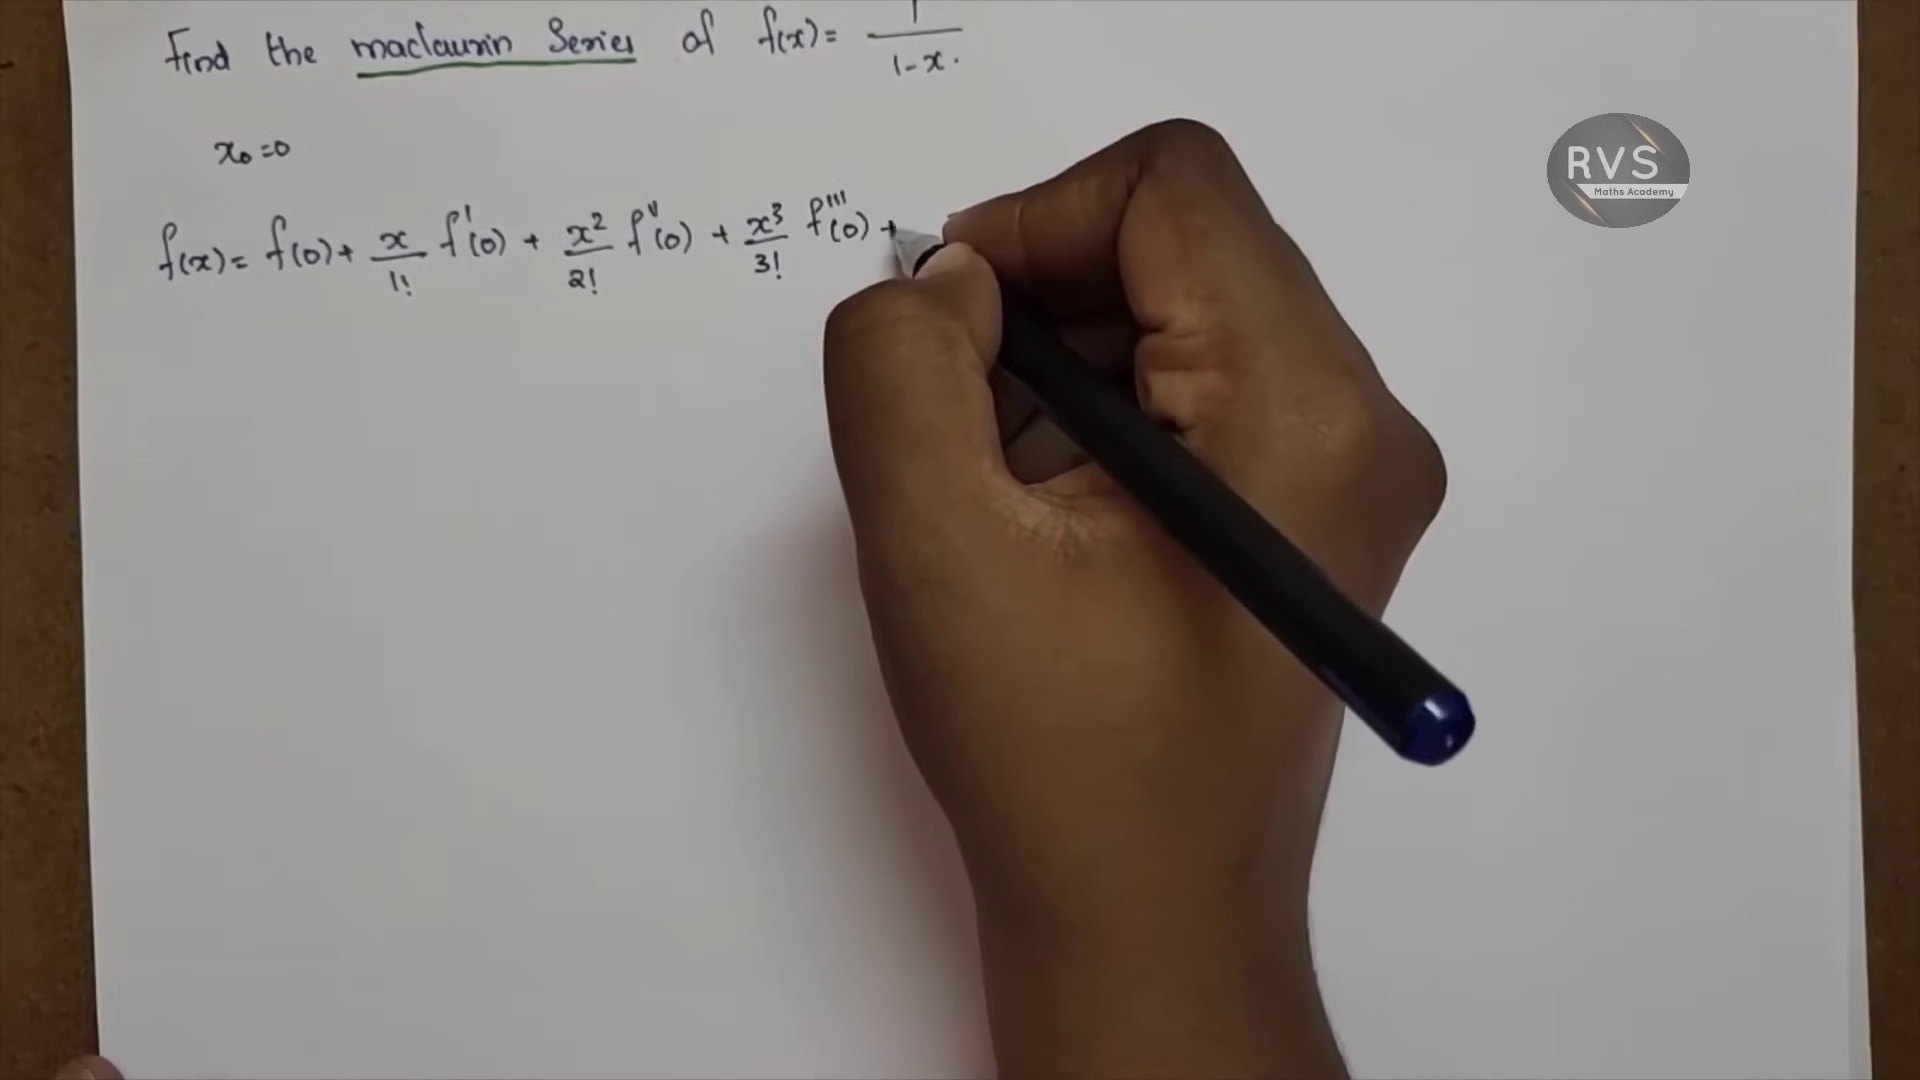 Find the maclaurin Series of f(x) = 1/(1-x).
x₀ = 0
f(x) = f(0) + x/1! f'(0) + x²/2! f''(0) + x³/3! f'''(0) +
RVS
Maths Academy